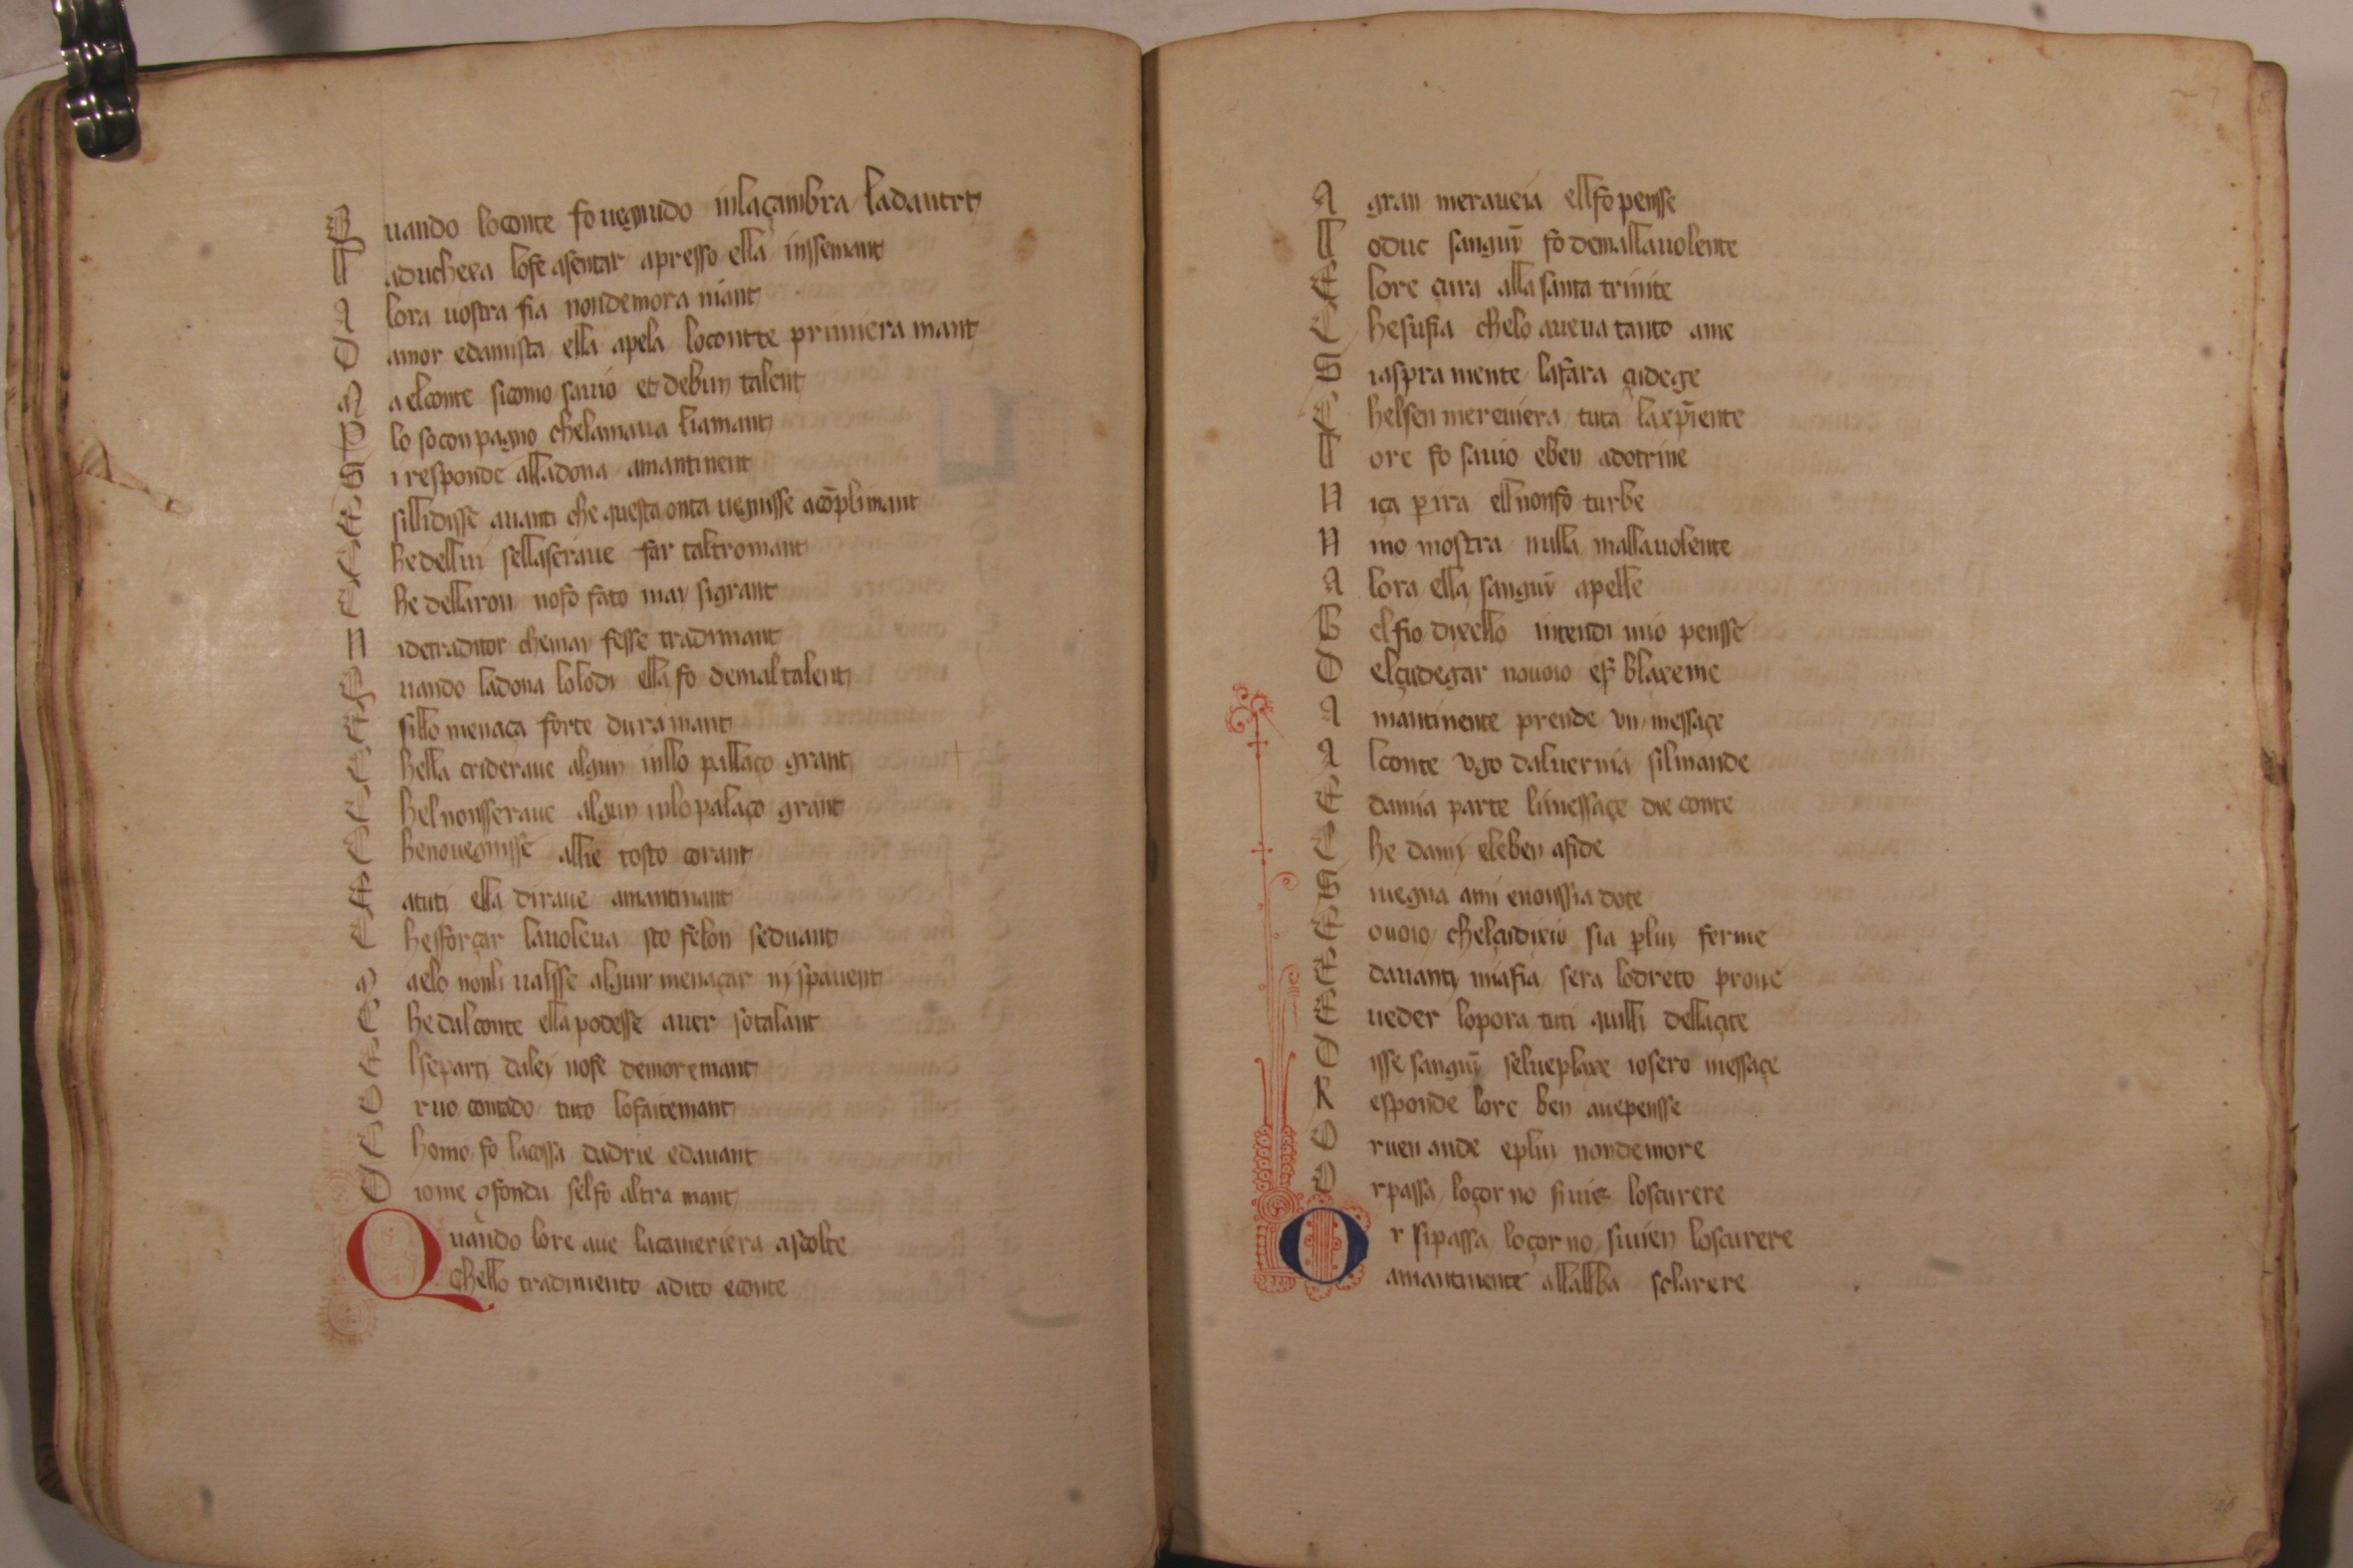 Quando loconte fo uegnudo inlaçambra ladantre
L aduchexa lofe asentar apresso ella inssemant
A lora uostra fia nondemora niant
D amor edamista ella apela locontte primiera mant
M a elconte sicomo sauio et debun talent
P lo soconpagno chelamaua liamant
S i responde alladona amantinent
E silli disse auanti che questa onta uegnisse acōplimant
C hedellui sellaseraue far taltromant
C he dellaron nofo fato may sigrant
N idetraditor chemay fesse tradimant
Q uando ladona lolodi ella fo demaltalent
E sillo menaça forte duramant
C hella crideraue algun inllo pallaço grant
C hel nonsseraue algun inlo palaço grant
C henouegnisse allie tosto corant
E atuti ella diraue amantinant
C hesforçar lauoleua sto felon seduant
M aelo nonli ualsse algun menaçar ni spauent
C hedalconte ella podesse auer so talant
E lseparti daley nofe demoremant
O r uo contado tuto lofaitemant
C homo fo lacossa dadrie edauant
D iome ꝯfonda selfo altra mant
Quando lore aue lacameriera ascolte
Chello tradimento adito econte
A gran meraueia ellfo pensse
L oduc sanguī fo demallauolente
E lore çura alla santa trinite
C hesufia chelo aueua tanto ame
S iaspramente lafara çudege
C helsen mereuiera tuta laxp̄iente
L ore fo sauio eben adotrine
N iça p ira ell nonfo turbe
N ino mostra nulla mallauolente
A lora ella sanguī apelle
B elfio dixello intendi mio pensse
D elçudegar nouoio eṣ̄ blaxeme
A mantinente prende vn messaçe
A lconte vgo daluernia silmande
E damia parte limessaçe die conte
C he damy eleben afide
S iuegna ami enonssia dote
E ouoio chelçudixio sia p luy ferme
E dauanty miafia sera lodreto proue
E ueder lopora tuti quilli dellaçite
D isse sanguī selueplaxe iosero messaçe
R esponde lore ben auepensse
O ruen ande eplui nondemore
O rpassa loçorno siuie loscurere
Or sipassa loçorno siuien loscurere
amantinente allallba sclarere